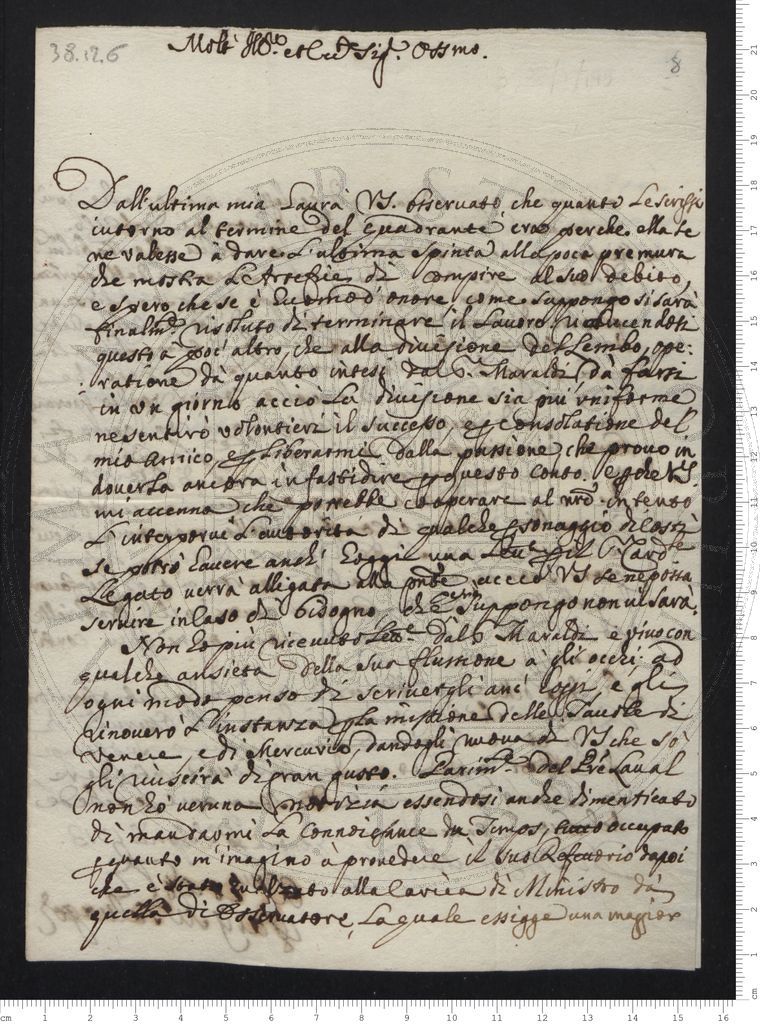 38.12.6
8
Molt' Illre et Ecc.te Sig.r Ossmo.
Dall'ultima mia havrà VS. osservato che quanto le scrissi
intorno al termine del quadrante era perche ella se
ne valesse à dare l'ultima spinta alla poca premura
che mostra l'Artefice di compire al suo debito,
e spero che se è huomo d'onore come suppongo si sarà
finalm.te risoluto di terminare il lavoro riducendosi
questo à poc'altro, che alla divisione del Lembo, ope-
ratione da quanto intesi dal S. Maraldi da farsi
in un giorno acciò la divisione sia più uniforme
ne sentirò volontieri il successo, e p consolatione del
mio amico, e p liberarmi dalla passione, che provo in
doverla ancora infastidire p questo conto. e p che VS
mi accenna che potrebbe cooperare al nro intento
l'interporvi l'autorità di qualche psonaggio di costì
se potrò havere anch' hoggi una del Card.le
Legato verrà alligata alla pnte acciò VS se ne possa
servire in caso di bisogno, che suppongo non vi sarà.
Non ho più ricevuto Lre dal S. Maraldi e vivo con
qualche ansietà della sua flussione à gli occhi ad
ogni modo penso di scrivergli anc' hoggi, e gli
rinoverò l'instanza p la missione delle Tavole di
Venere, e di Mercurio, dandogli nuova di VS che sò
gli riuscirà di gran gusto. Parim.te del Pre Laval
non ho veruna notizia essendosi anche dimenticato
di mandarmi la Connoissance du Temps, occupato
p quanto m'imagino à provedere il suo Refettorio dapoi
che è stato inalzato alla carica di Ministro da
quella di Osservatore, la quale essigge una maggior